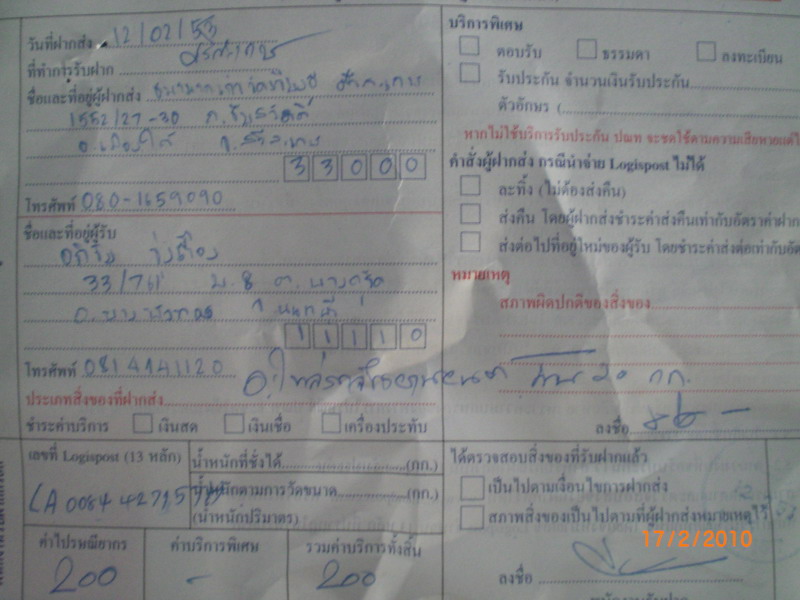 วันที่ฝากส่ง 12/02/53
ที่ทำการรับฝาก ศรีสะเกษ
ชื่อและที่อยู่ผู้ฝากส่ง
1552/27-30
จ.ศรีสะเกษ
33000
โทรศัพท์ 080-1659090
ชื่อและที่อยู่ผู้รับ
33/761 ม.8 ต.บางคูรัด
อ.บางบัวทอง จ.นนทบุรี
11110
โทรศัพท์ 0814141120
ประเภทสิ่งของที่ฝากส่ง
ชำระค่าบริการ เงินสด เงินเชื่อ เครื่องประทับ
เลขที่ Logispost (13 หลัก)
น้ำหนักที่ชั่งได้ (กก.)
น้ำหนักตามการวัดขนาด (กก.)
(น้ำหนักปริมาตร)
ค่าไปรษณียากร ค่าบริการพิเศษ รวมค่าบริการทั้งสิ้น
200 - 200
บริการพิเศษ
ตอบรับ ธรรมดา ลงทะเบียน
รับประกัน จำนวนเงินรับประกัน
ตัวอักษร (
หากไม่ใช้บริการรับประกัน ปณท จะชดใช้ตามความเสียหายแต่ไ
คำสั่งผู้ฝากส่ง กรณีนำจ่าย Logispost ไม่ได้
ละทิ้ง (ไม่ต้องส่งคืน)
ส่งคืน โดยผู้ฝากส่งชำระค่าส่งคืนเท่ากับอัตราค่าฝาก
ส่งต่อไปที่อยู่ใหม่ของผู้รับ โดยชำระค่าส่งต่อเท่ากับอัต
หมายเหตุ
สภาพผิดปกติของสิ่งของ
20 กก.
ลงชื่อ
ได้ตรวจสอบสิ่งของที่รับฝากแล้ว
เป็นไปตามเงื่อนไขการฝากส่ง
สภาพสิ่งของเป็นไปตามที่ผู้ฝากส่งหมายเหตุไว้
17/2/2010
ลงชื่อ